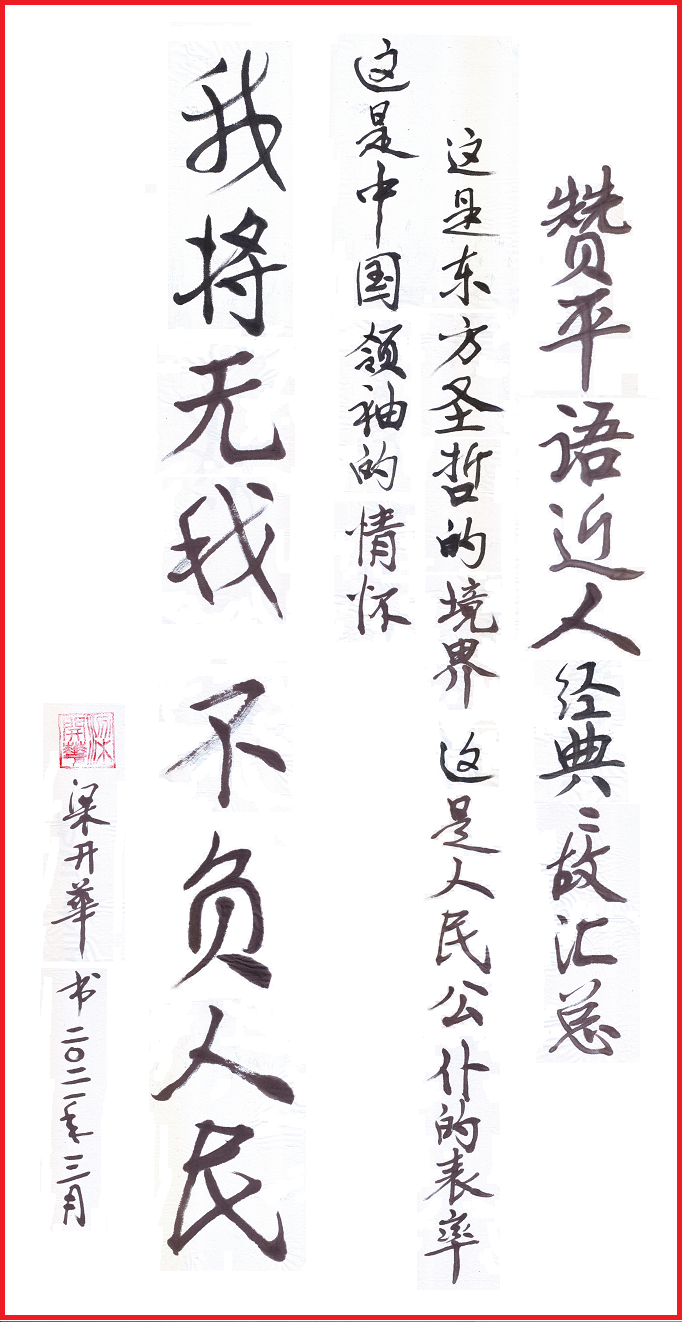 赞平语近人经典〻故汇总
这是东方圣哲的境界 这是人民公仆的表率
这是中国领袖的情怀
我将无我 不负人民
梁开華 书二〇二一年三月
梁開華